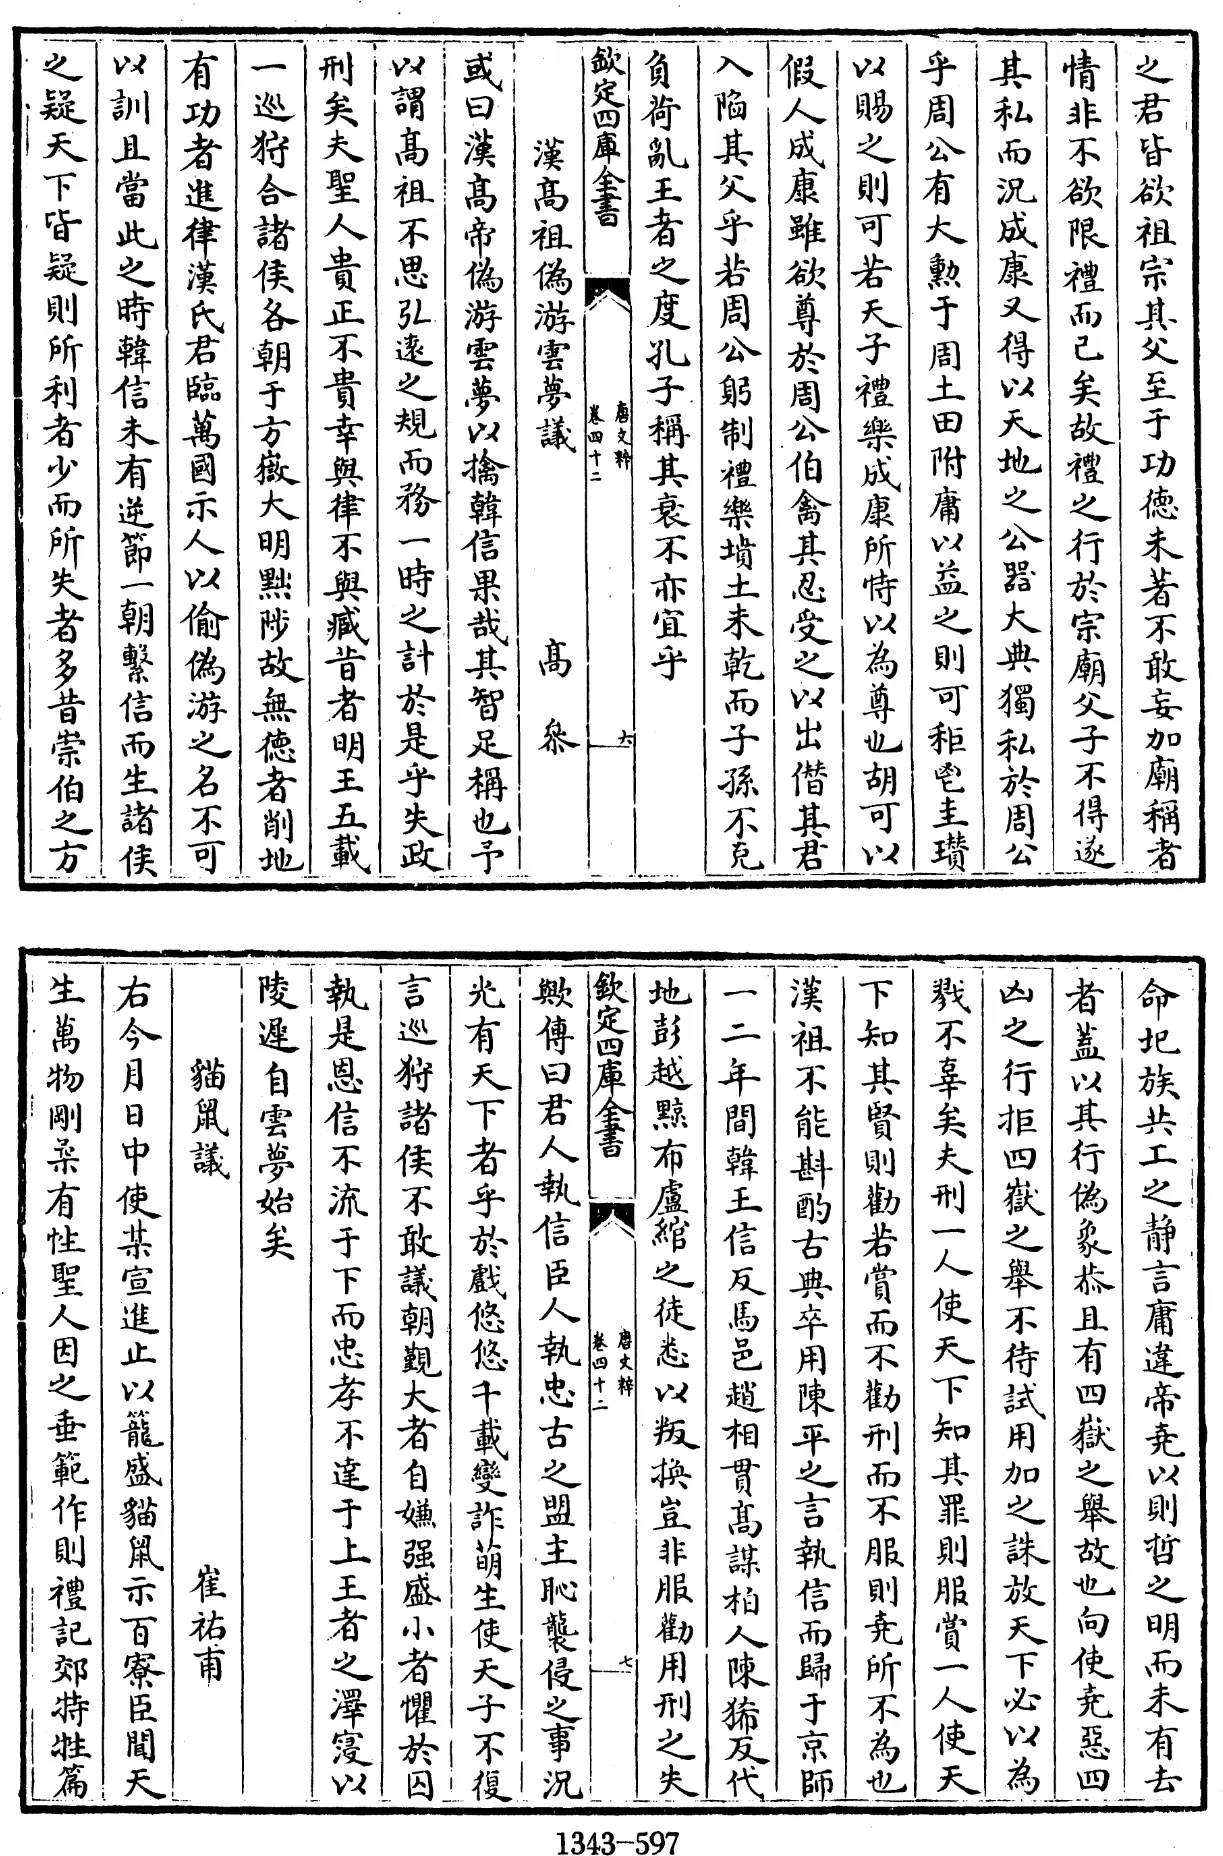 之君皆欲祖宗其父至于功德未著不敢妄加廟稱者
情非不欲限禮而已矣故禮之行於宗廟父子不得遂
其私而況成康又得以天地之公器大典獨私於周公
乎周公有大勲于周土田附庸以益之則可秬鬯圭瓚
以賜之則可若天子禮樂成康所恃以為尊也胡可以
假人成康雖欲尊於周公伯禽其忍受之以出僣其君
入陷其父乎若周公躬制禮樂墳土未乾而子孫不克
負荷亂王者之度孔子稱其衰不亦宜乎
欽定四庫全書
唐文粹
卷四十二
六
漢髙祖偽游雲夢議 髙 叅
或曰漢髙帝偽游雲夢以擒韓信果哉其智足稱也予
以謂髙祖不思弘逺之規而務一時之計於是乎失政
刑矣夫聖人貴正不貴幸與律不與臧昔者明王五載
一巡狩合諸侯各朝于方嶽大明黜陟故無德者削地
有功者進律漢氏君臨萬國示人以偷偽游之名不可
以訓且當此之時韓信未有逆節一朝繫信而生諸侯
之疑天下皆疑則所利者少而所失者多昔崇伯之方
命圯族共工之靜言庸違帝堯以則哲之明而未有去
者蓋以其行偽象恭且有四嶽之舉故也向使堯惡四
凶之行拒四嶽之舉不待試用加之誅放天下必以為
戮不辜矣夫刑一人使天下知其罪則服賞一人使天
下知其賢則勸若賞而不勸刑而不服則堯所不為也
漢祖不能斟酌古典卒用陳平之言執信而歸于京師
一二年間韓王信反馬邑趙相貫髙謀柏人陳豨反代
地彭越黥布盧綰之徒悉以叛換豈非服勸用刑之失
欽定四庫全書
唐文粹
卷四十二
七
歟傳曰君人執信臣人執忠古之盟主恥襲侵之事況
光有天下者乎於戲悠悠千載變詐萌生使天子不復
言巡狩諸侯不敢議朝覲大者自嫌强盛小者懼於囚
執是恩信不流于下而忠孝不達于上王者之澤寖以
陵遲自雲夢始矣
貓鼠議 崔祐甫
右今月日中使某宣進止以籠盛貓鼠示百寮臣聞天
生萬物剛柔有性聖人因之垂範作則禮記郊特牲篇
1343-597